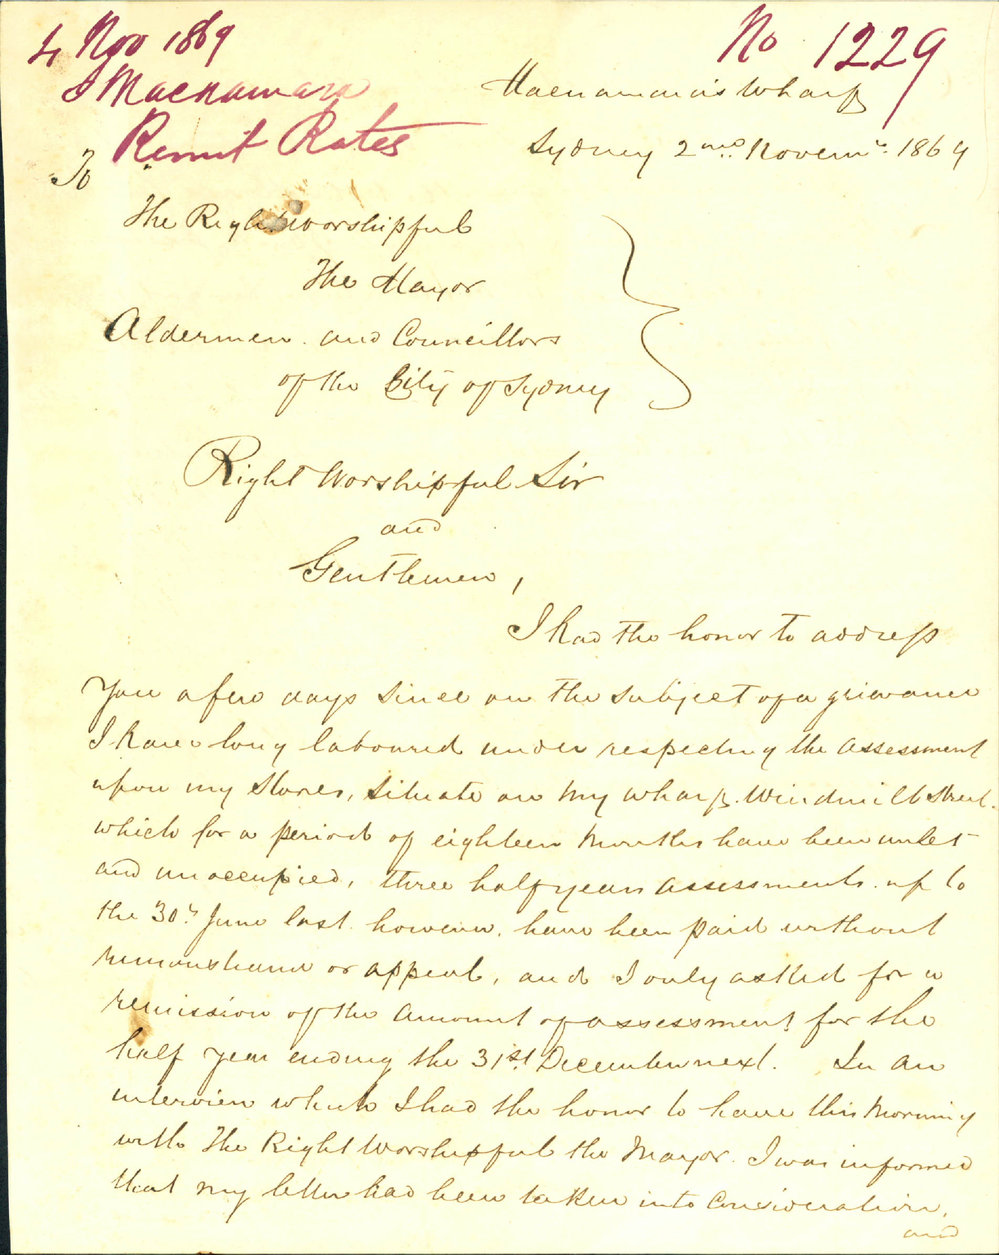 4 Nov 1869
No. 1229
J Macnamara
Remit Rates
Macnamara's Wharf
Sydney 2nd. Novemr. 1869
To
The Right Worshipful
The Mayor
Aldermen and Councillors
of the City of Sydney
Right Worshipful Sir
and
Gentlemen,
I had the honor to address
You a few days since on the subject of a grievance
I have long laboured under respecting the assessment
upon my Stores, situate on my wharf. Windmill Street.
which for a period of eighteen months have been unlet
and unoccupied, three half years assessments. up to
the 30th June last. however, have been paid without
remonstrance or appeal, and I only asked for a
remission of the amount of assessment for the
half year ending the 31st. December next. In an
interview which I had the honor to have this morning
with The Right Worshipful the Mayor. I was informed
that my letter had been taken into consideration,
and